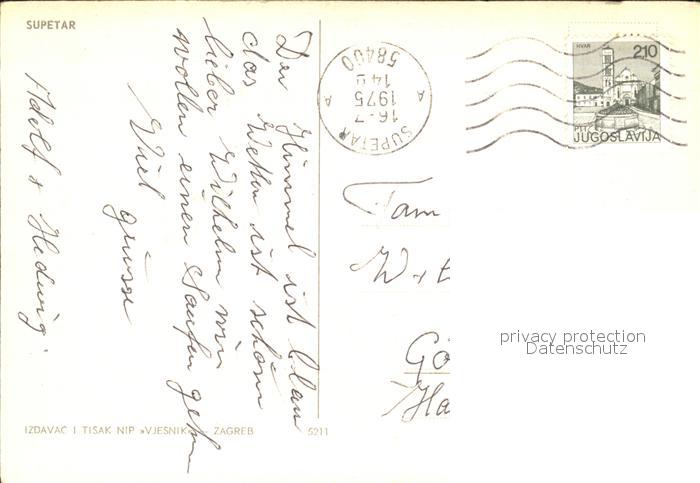 SUPETAR
Der Himmel ist blau
das Wetter ist schön
lieber Wilhelm wir
wollen einen Saufen gehn
Viel
grüsse
Adolf + Hedwig.
IZDAVAČ I TISAK NIP »VJESNIK« - ZAGREB
5211
58400
14
16-7
1975
A A
SUPETAR
HVAR
2.10
JUGOSLAVIJA
Fam
Gö
Ha
privacy protection
Datenschutz